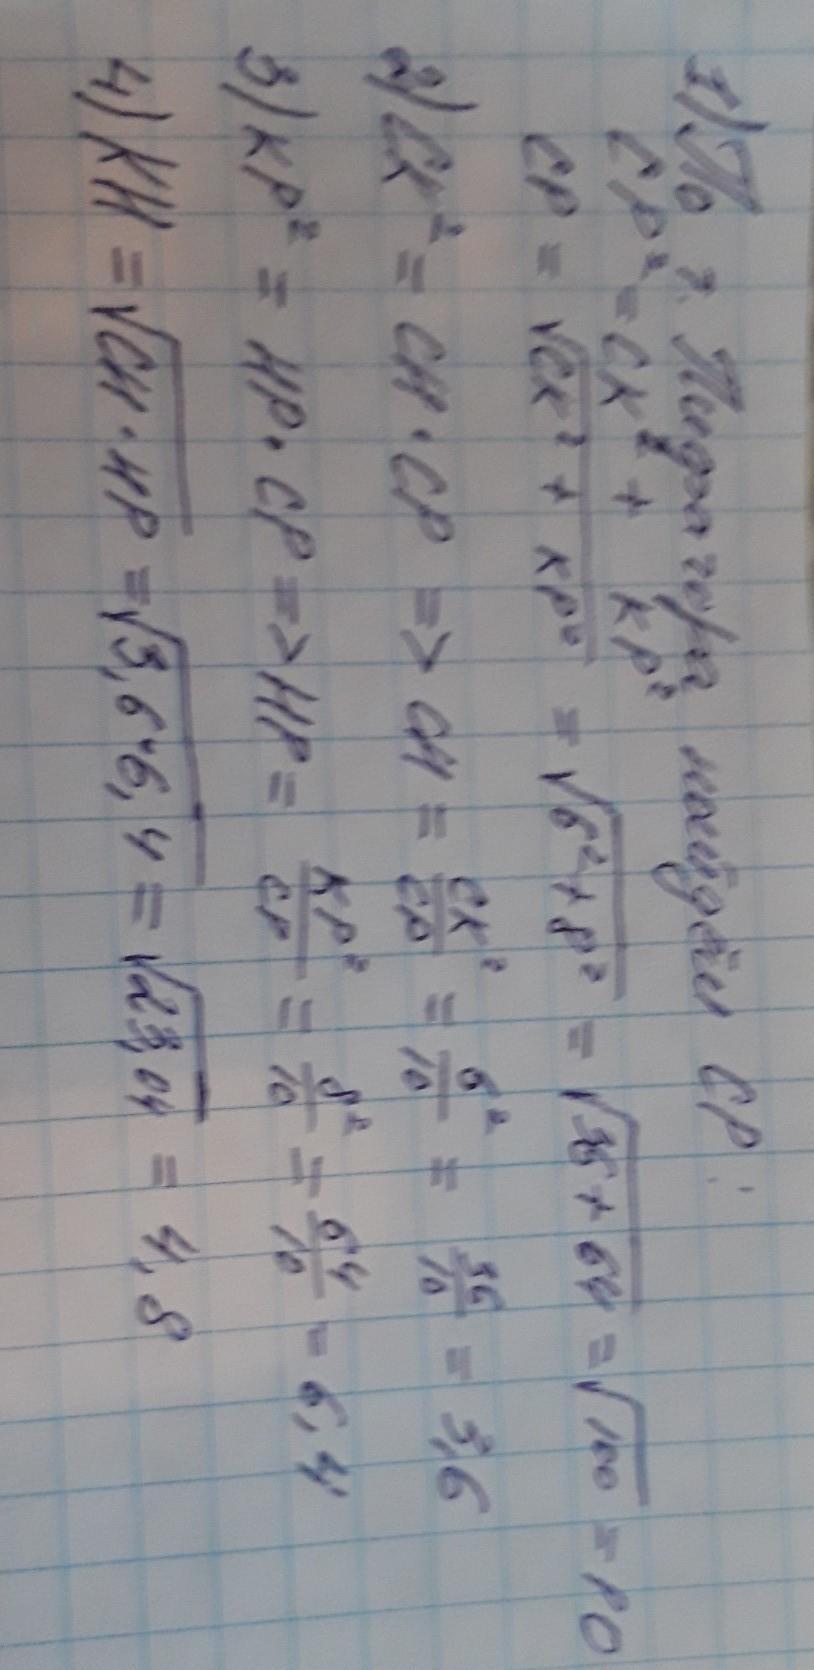 1) По т. Пифагора найдём CP:
CP² = CK² + KP²
CP = √CK² + KP² = √6² + 8² = √36 + 64 = √100 = 10
2) CK² = CH · CP => CH = CK²/CP = 6²/10 = 36/10 = 3,6
3) KP² = HP · CP => HP = KP²/CP = 8²/10 = 64/10 = 6,4
4) KH = √CH · HP = √3,6·6,4 = √23,04 = 4,8